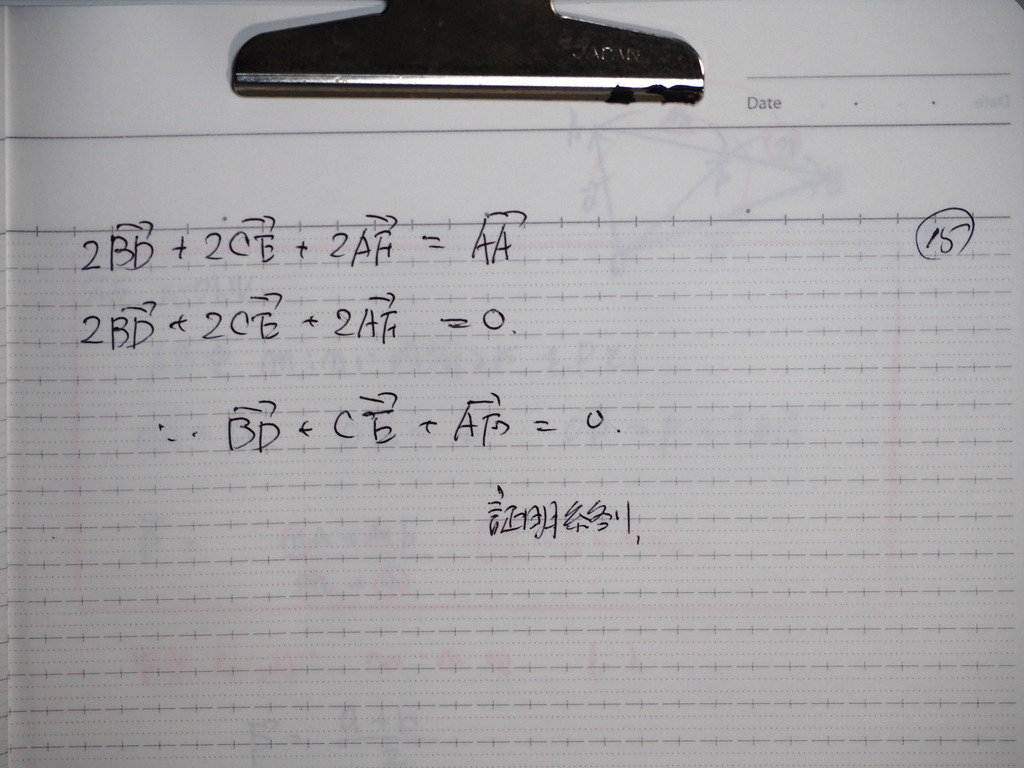 JAPAN
Date
⑮
2BD→ + 2CE→ + 2AF→ = AA→
2BD→ + 2CE→ + 2AF→ = 0.
∴ BD→ + CE→ + AF→ = 0.
証明終り,